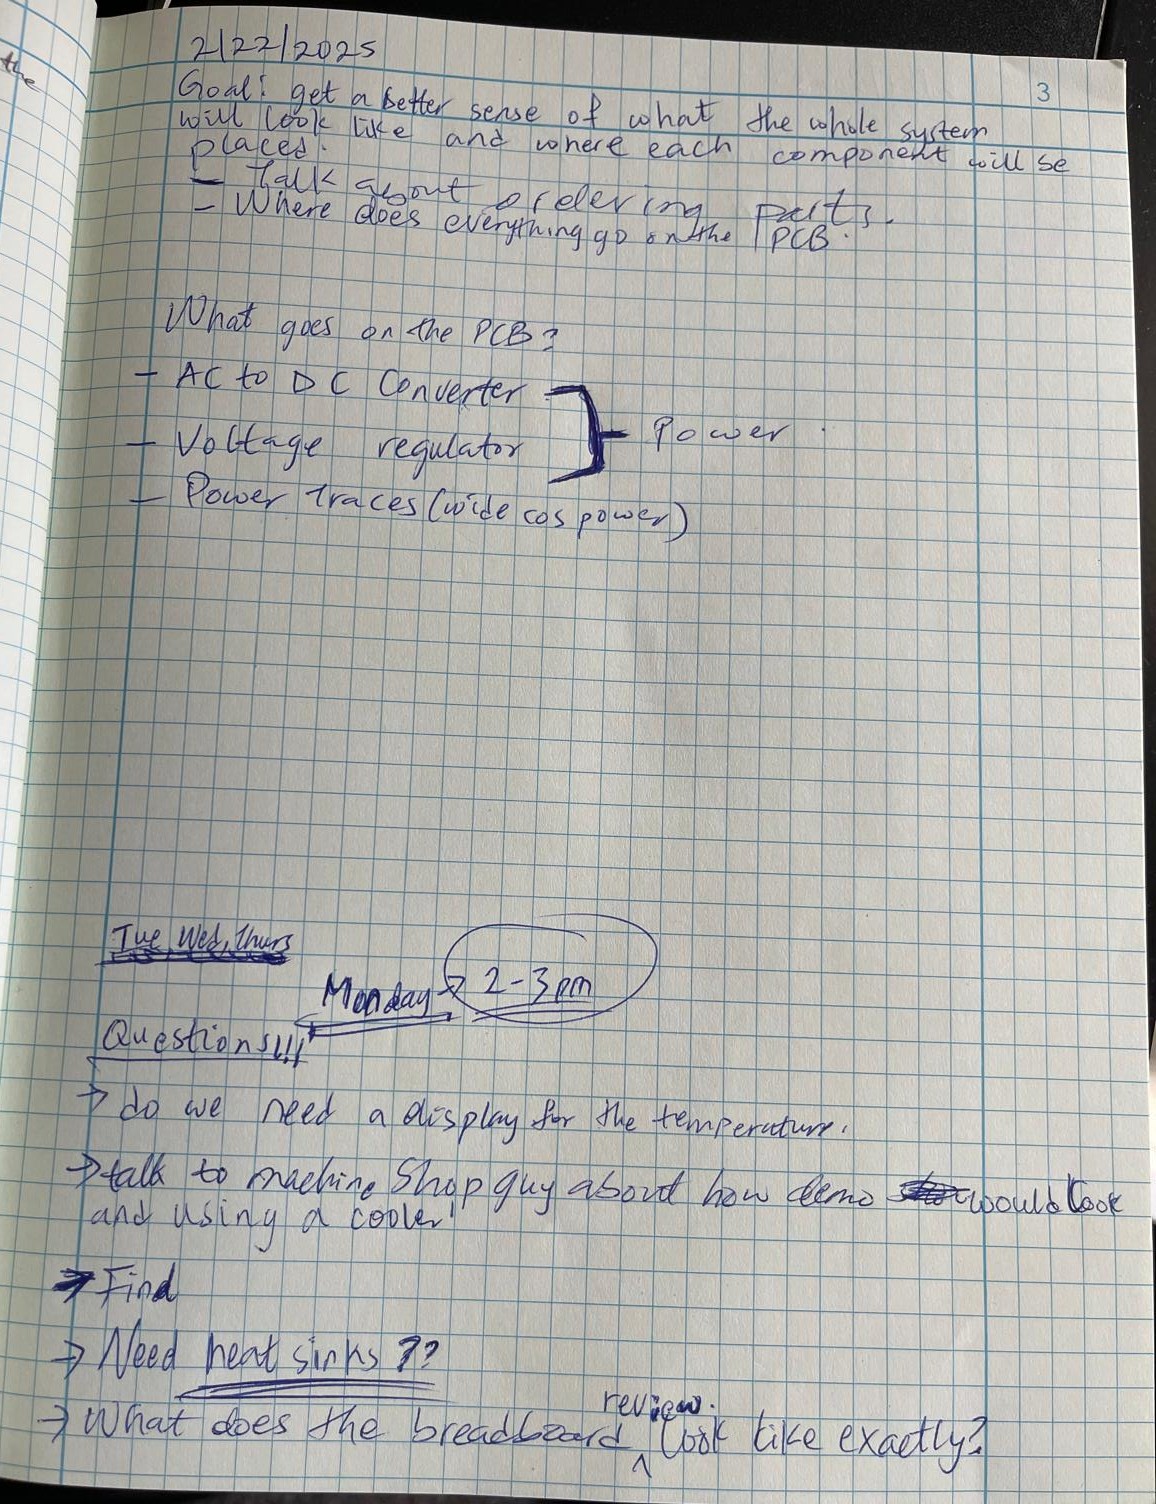 the
3
2/22/2025
Goal: get a better sense of what the whole system
will look like and where each component will be
placed.
- Talk about ordering parts.
- Where does everything go on the PCB.
What goes on the PCB?
- AC to DC Converter
- Voltage regulator
Power
- Power traces (wide cos power)
Tue, Wed, Thurs
Monday → 2-3pm
Questions!!!
→ do we need a display for the temperature.
→ talk to machine shop guy about how demo would look
and using a cooler!
→ Find
→ Need heat sinks ??
review.
→ What does the breadboard ^ look like exactly?